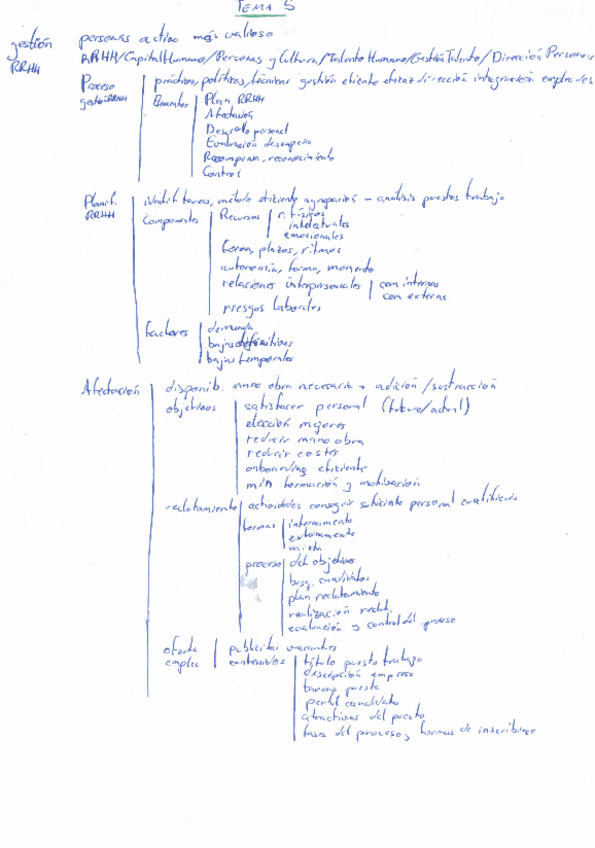 TEMA 5
gestión RRHH
personas activo más valioso
RRHH/Capital Humano/Personas y Cultura/Talento Humano/Gestión Talento/Dirección Personas
Proceso gestión RRHH
prácticas, políticas, técnicas gestión eficiente eficaz dirección integración empleados
Elementos
Plan RRHH
Afectación
Desarrollo personal
Evaluación desempeño
Recompensa, reconocimiento
Control
Planif. RRHH
identif. tareas, método eficiente agrupación – análisis puestos trabajo
Componentes
Recursos
r. físicos
intelectuales
emocionales
forma, plazos, ritmos
autonomía, forma, momento
relaciones interpersonales
com interna
com externa
riesgos laborales
factores
demanda
bajas definitivas
bajas temporales
Afectación
disponib. mano obra necesaria → adición/sustracción
objetivos
satisfacer personal (futuro/actual)
elección mejores
reducir mano obra
reducir costes
onboarding eficiente
min formación y motivación
reclutamiento
actividades conseguir suficiente personal cualificado
formas
internamente
externamente
mixta
proceso
def. objetivos
búsq. candidatos
plan reclutamiento
realización reclut.
evaluación y control del proceso
oferta empleo
publicitar vacantes
contenidos
título puesto trabajo
descripción empresa
tareas puesto
perfil candidato
atractivos del puesto
fases del proceso y formas de inscribirse